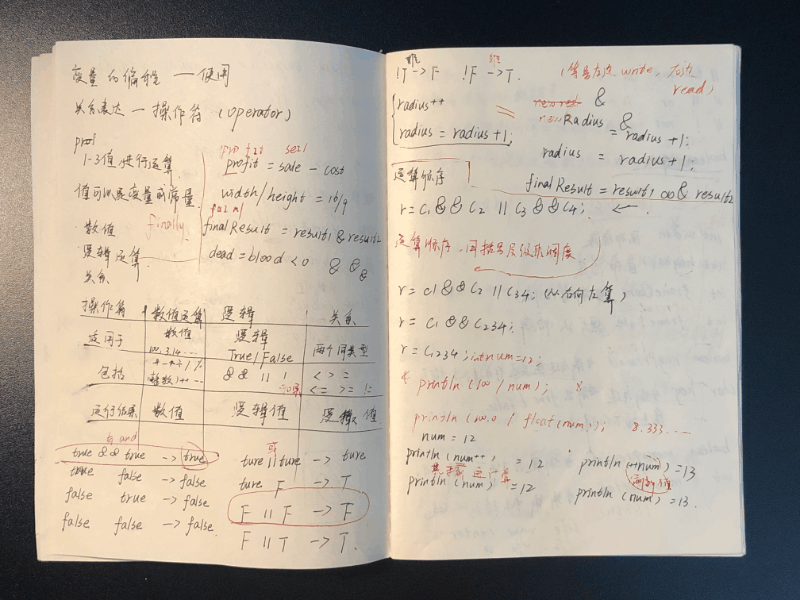 变量的编程 — 使用
关系表达 — 操作符 (operator)
1-3值进行运算
值可以是变量或常量
数值
逻辑运算
关系
profit = sale - cost
width/height = 16/9
Finally
finalResult = result1 & result2
dead = blood < 0 & &
操作符 数值运算 逻辑 关系
适用于 数值 逻辑 两个同类型
True/False
+-*÷/%
包括 && || ! < > =
整数)++ -- <= >= !=
运行结果 数值 逻辑值 逻辑值
与 and 或
true && true -> true ture || ture -> ture
true false -> false ture F -> T
false true -> false F || F -> F
false false -> false F || T -> T.
!T -> F !F -> T. (等号左边 write, 右边
read)
radius++ &
radius = radius+1; Radius & = radius+1.
radius = radius+1.
运算顺序
finalResult = result1 & result2
r = C1 && C2 || C3 && C4;
运算顺序 - 同括号层级取调度
r = c1 && C2 || C34; (从右向左算)
r = C1 && C234;
r = C1234; int num=12;
println (100 / num); 8
println (100.0 / float(num)); 8.333....
num = 12
println (num++) = 12 println(++num)=13
println (num) = 12 println(num)=13.